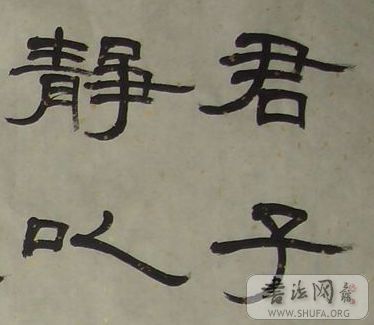 君子
静以
书法网
WWW.SHUFA.ORG